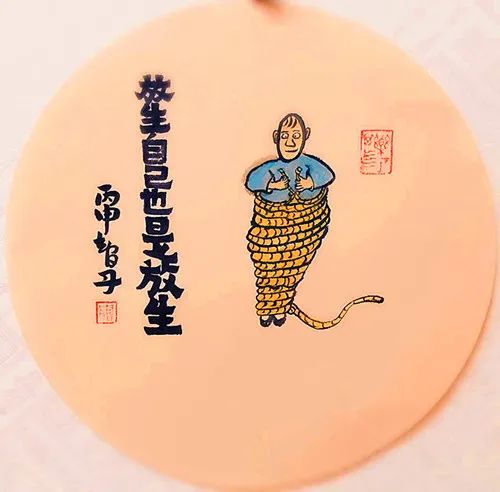 放生自己也是放生
丙申